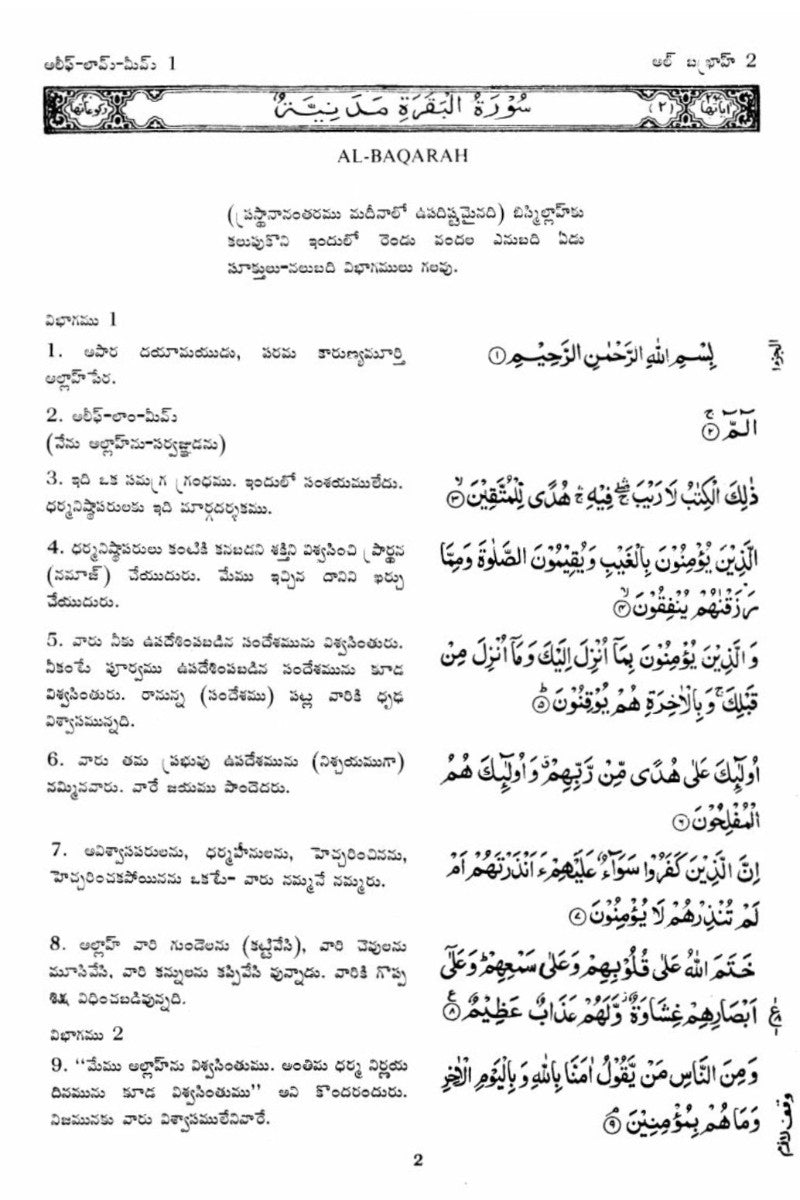 అలీఫ్-లామ్-మీమ్ 1
అల్ బఖ్రాహ్ 2
رکوعاتها ۴۰
سُوْرَةُ الْبَقَرَةِ مَدَنِيَّةٌ
(٢)
اٰیاتها
AL-BAQARAH
(ప్రస్థానానంతరము మదీనాలో ఉపదిష్టమైనది) బిస్మిల్లాహ్‌కు
కలుపుకొని ఇందులో రెండు వందల ఎనుబది ఏడు
సూక్తులు-నలుబది విభాగములు గలవు.
విభాగము 1
1. అపార దయామయుడు, పరమ కారుణ్యమూర్తి
అల్లాహ్‌పేర.
بِسْمِ اللهِ الرَّحْمٰنِ الرَّحِيْمِ ۝١
2. అలీఫ్-లాం-మీమ్
(నేను అల్లాహ్‌ను-సర్వజ్ఞుడను)
الٓمّٓ ۚ۝٢
3. ఇది ఒక సమగ్ర గ్రంధము. ఇందులో సంశయములేదు.
ధర్మనిష్ఠాపరులకు ఇది మార్గదర్శకము.
ذٰلِكَ الْكِتٰبُ لَا رَيْبَ ۛۖ فِيْهِ ۛ هُدًى لِّلْمُتَّقِيْنَ ۙ۝٣
4. ధర్మనిష్ఠాపరులు కంటికి కనబడని శక్తిని విశ్వసించి ప్రార్థన
(నమాజ్) చేయుదురు. మేము ఇచ్చిన దానిని ఖర్చు
చేయుదురు.
الَّذِيْنَ يُؤْمِنُوْنَ بِالْغَيْبِ وَيُقِيْمُوْنَ الصَّلٰوةَ وَمِمَّا
رَزَقْنٰهُمْ يُنْفِقُوْنَ ۙ۝٤
5. వారు నీకు ఉపదేశింపబడిన సందేశమును విశ్వసింతురు.
నీకంటే పూర్వము ఉపదేశింపబడిన సందేశమును కూడ
విశ్వసింతురు. రానున్న (సందేశము) పట్ల వారికి ధృఢ
విశ్వాసమున్నది.
وَالَّذِيْنَ يُؤْمِنُوْنَ بِمَآ اُنْزِلَ اِلَيْكَ وَمَآ اُنْزِلَ مِنْ
قَبْلِكَ ۚ وَبِالْاٰخِرَةِ هُمْ يُوْقِنُوْنَ ؕ۝٥
6. వారు తమ ప్రభువు ఉపదేశమును (నిశ్చయముగా)
నమ్మినవారు. వారే జయము పొందెదరు.
اُولٰٓئِكَ عَلٰى هُدًى مِّنْ رَّبِّهِمْ ۗ وَاُولٰٓئِكَ هُمُ
الْمُفْلِحُوْنَ ۝٦
7. అవిశ్వాసపరులను, ధర్మహీనులను, హెచ్చరించినను,
హెచ్చరించకపోయినను ఒకటే- వారు నమ్మనే నమ్మరు.
اِنَّ الَّذِيْنَ كَفَرُوْا سَوَآءٌ عَلَيْهِمْ ءَاَنْذَرْتَهُمْ اَمْ
لَمْ تُنْذِرْهُمْ لَا يُؤْمِنُوْنَ ۝٧
8. అల్లాహ్ వారి గుండెలను (కట్టివేసి), వారి చెవులను
మూసివేసి, వారి కన్నులను కప్పివేసి వున్నాడు. వారికి గొప్ప
శిక్ష విధించబడివున్నది.
خَتَمَ اللهُ عَلٰى قُلُوْبِهِمْ وَعَلٰى سَمْعِهِمْ ؕ وَعَلٰٓى
اَبْصَارِهِمْ غِشَاوَةٌ ۫ وَّلَهُمْ عَذَابٌ عَظِيْمٌ ۝٨
విభాగము 2
9. "మేము అల్లాహ్‌ను విశ్వసింతుము. అంతిమ ధర్మ నిర్ణయ
దినమును కూడ విశ్వసింతుము" అని కొందరందురు.
నిజమునకు వారు విశ్వాసములేనివారే.
وَمِنَ النَّاسِ مَنْ يَّقُوْلُ اٰمَنَّا بِاللهِ وَبِالْيَوْمِ الْاٰخِرِ
وَمَا هُمْ بِمُؤْمِنِيْنَ ۘ۝٩
وقف لازم
2